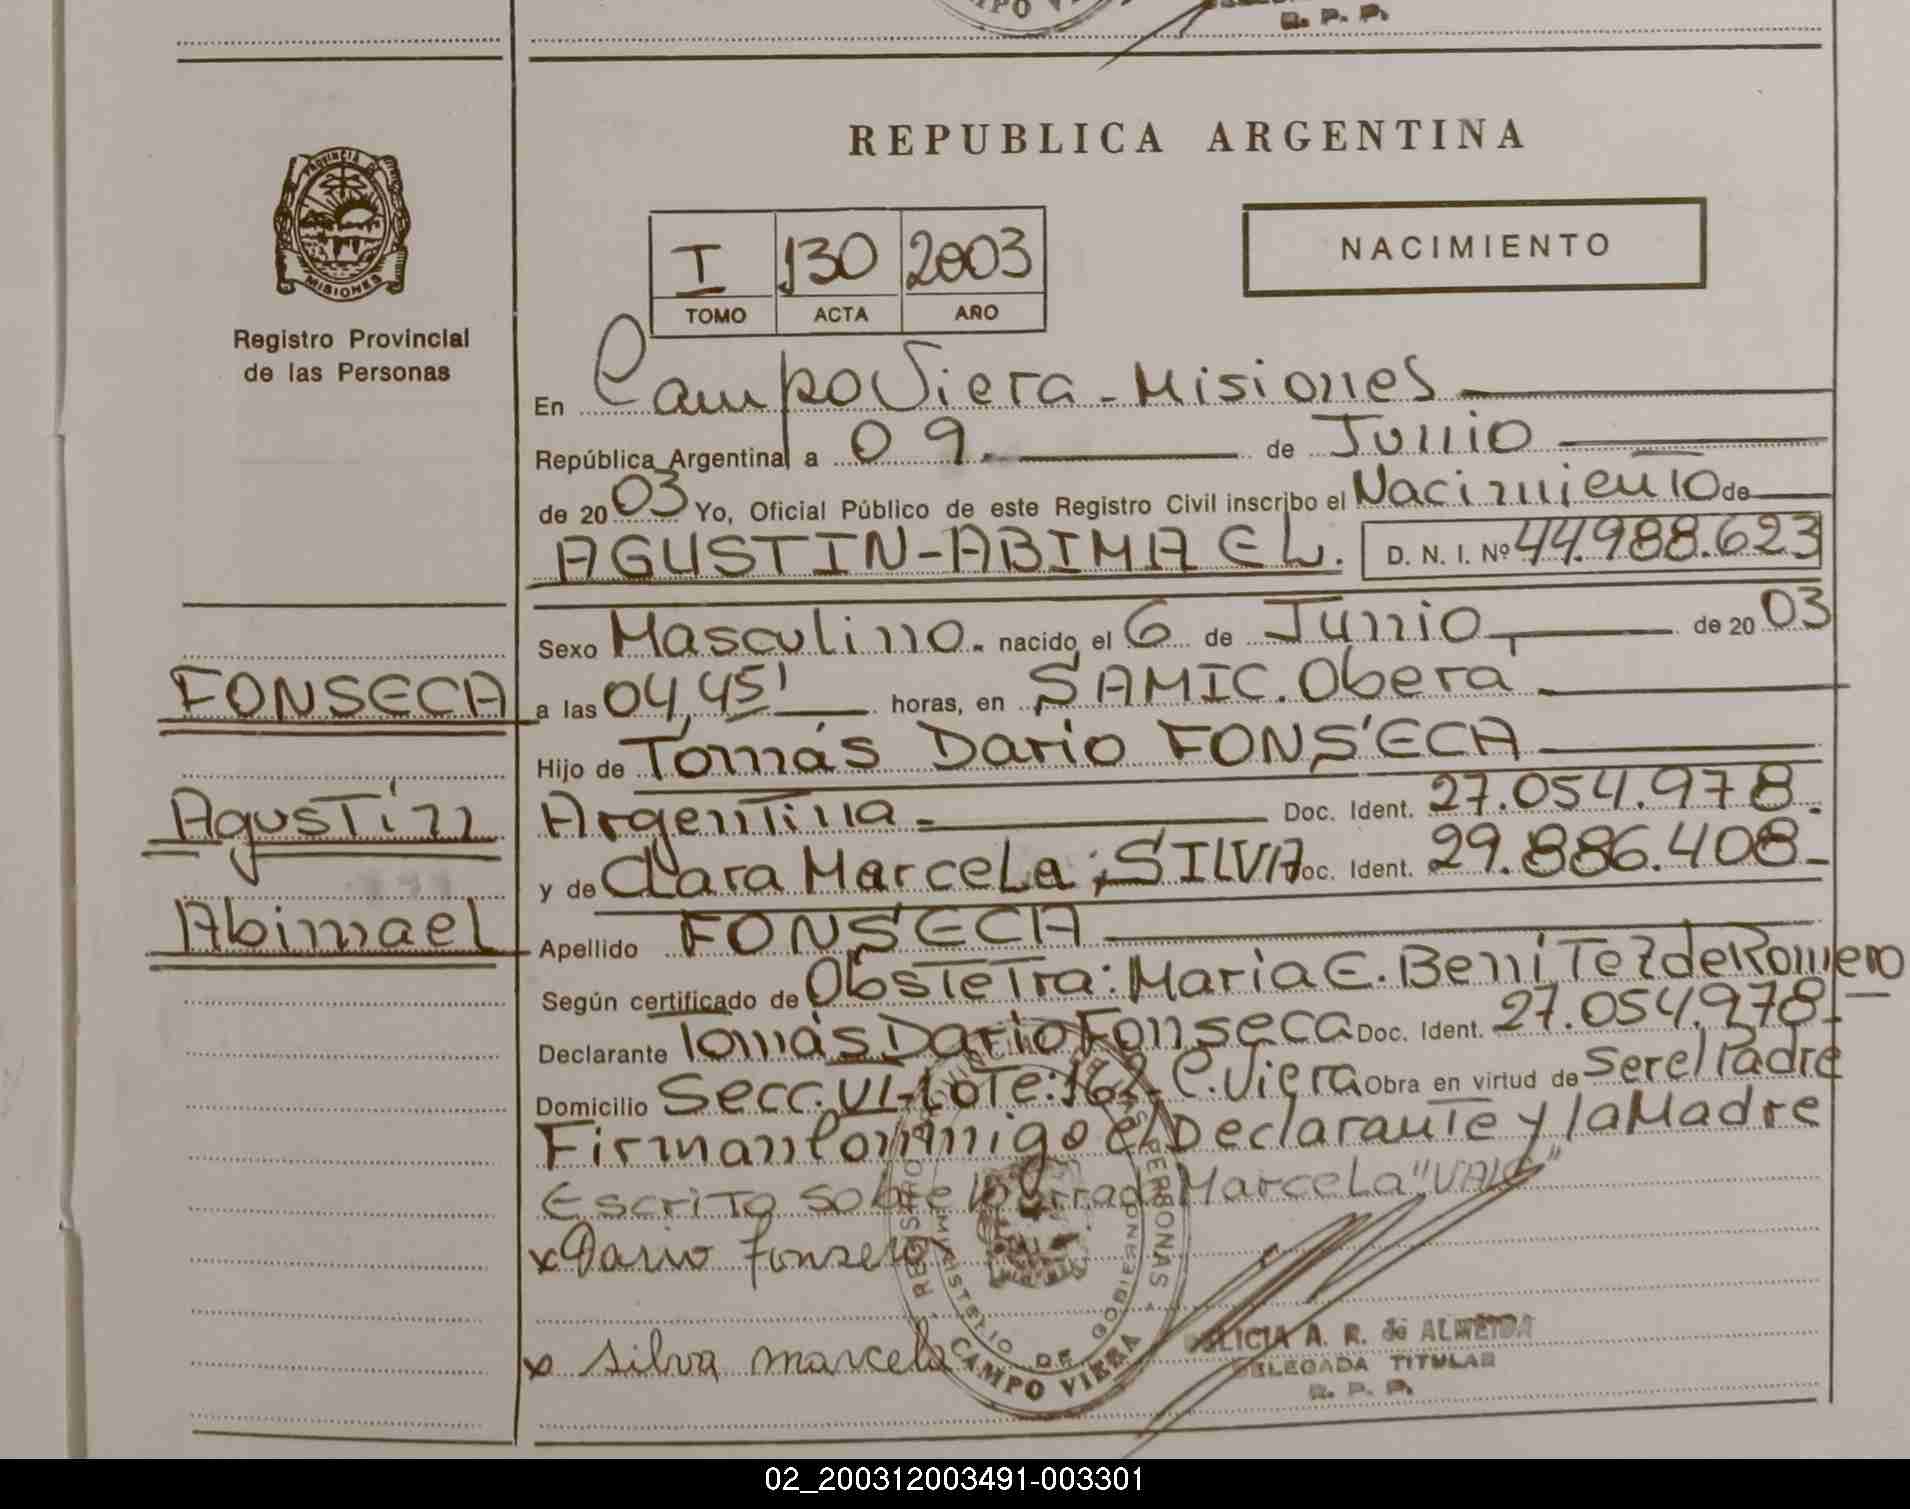 R. P. P.
REPUBLICA ARGENTINA
PROVINCIA
MISIONES
Registro Provincial
de las Personas
I 130 2003
TOMO ACTA AÑO
NACIMIENTO
En Campo Viera - Misiones
República Argentina a 09 de Junio
de 2003 Yo, Oficial Público de este Registro Civil inscribo el Nacimiento de
AGUSTIN-ABIMAEL. D. N. I. Nº 44.988.623
Sexo Masculino. nacido el 6 de Junio de 2003
FONSECA
a las 04,45' horas, en SAMIC. Obera
Hijo de Tomás Dario FONSECA
Agustín
Argentina - Doc. Ident. 27.054.978.
y de Clara Marcela; SILVA Doc. Ident. 29.886.408-
Abimael
Apellido FONSECA
Según certificado de Obstetra: Maria E. Benitez de Romero
Declarante Tomás Dario Fonseca Doc. Ident. 27.054.978-
Domicilio Secc. VI-Lote: 162- C. Viera Obra en virtud de ser el Padre
Firman Conmigo el Declarante y la Madre
Escrito sobre borrado Marcela "VALE"
x Dario fonseca
x silva marcela
REGISTRO DE LAS PERSONAS
MINISTERIO DE GOBIERNO
CAMPO VIERA
ALICIA A. R. de ALMEIDA
DELEGADA TITULAR
R. P. P.
02_200312003491-003301